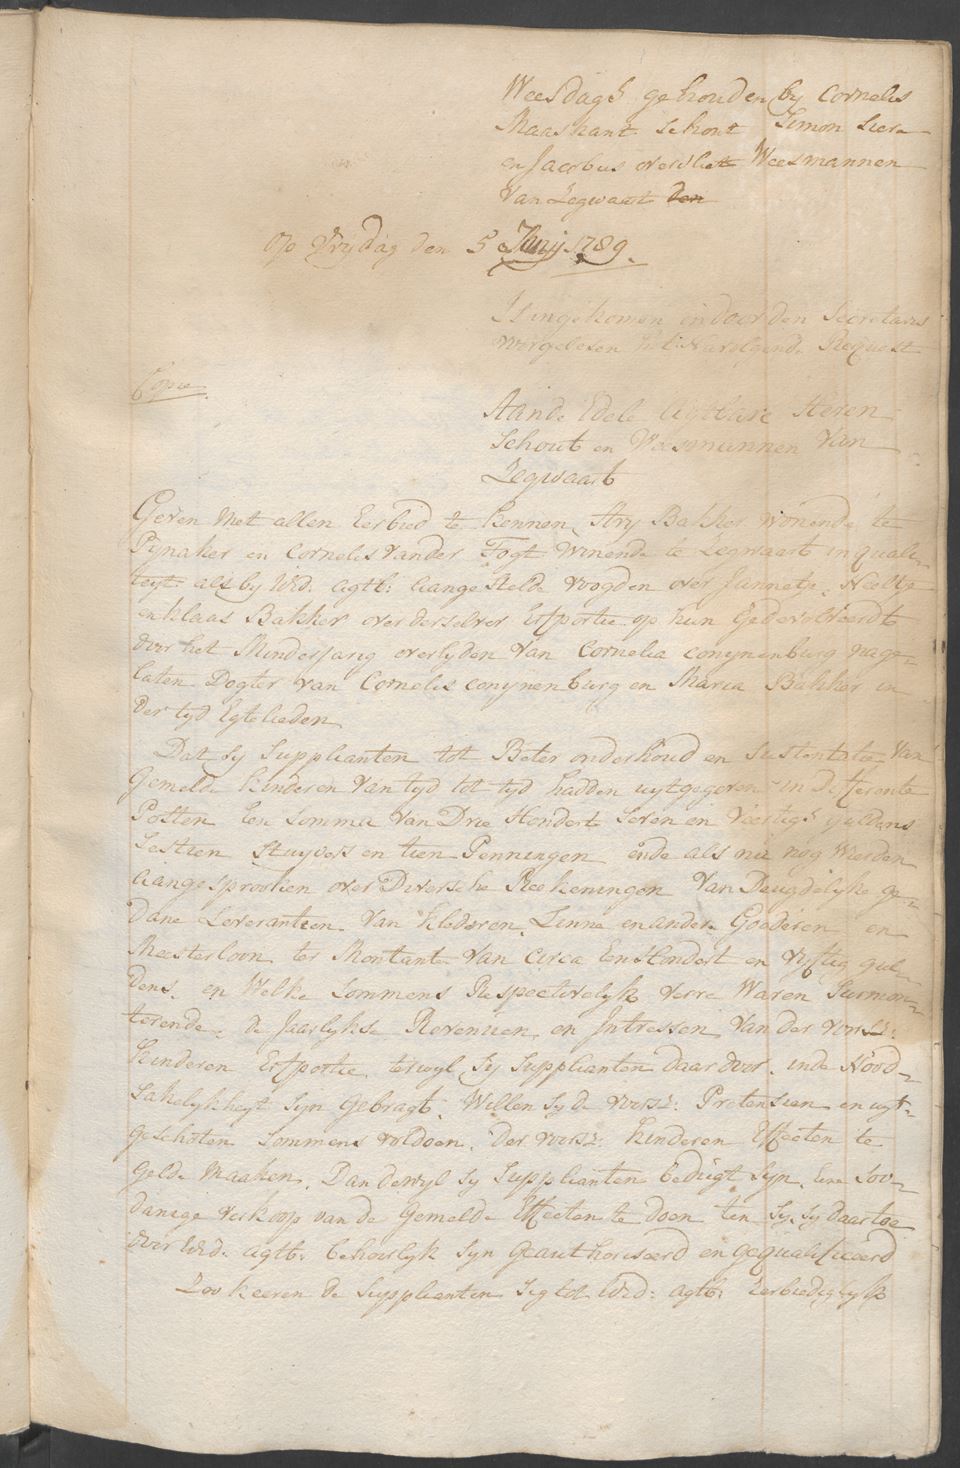 Weesdagh gehouden by Cornelis
Maaskant Schout Simon Siere
en Jacobus overvliet Weesmannen
van Zegwaart den
op Vrydag den 5e Junij 1789.
Is ingekomen en door den Secretaris
voorgelesen het Navolgende Request
Copie
Aan de Edele Agtbare Heren
Schout en Weesmannen van
Zegwaart
Geven Met allen Eerbied te kennen, Ary Bakker wonende te
Pynaker en Cornelis vander Togt Wonende te Zegwaart in quali-
teyt als by UEd: agtb: aangestelde voogden over Jannetje, Neeltje
en klaas Bakker over derselver Erfportie op hun Gedevolveerdt
door het Minderjarig overlyden van Cornelia conynenburg nage-
laten Dogter van Cornelis conynenburg en Maria Bakker in
der tyd Egtelieden
Dat sy Supplianten tot Beter onderhoud en Sustentatie van
Gemelde Kinderen van tyd tot tyd hadden uytgegeven in Differente
Posten Een Somma van Drie Hondert Seven en Veertigh guldens
Sestien Stuyvers en tien Penningen ende als nu nog Wierden
aangesprooken over Diversche Reekeningen van Deugdelyke ge-
dane Leverantien van klederen, Linne en andere Goederen en
Meesterloon ter Montante van circa Een Hondert en vyftig gul-
dens, en Welke Sommens Respectivelyk verre Waren Surmon-
terende, de Jaarlykse Revenuen en Intressen van der voorsz:
kinderen Erfportie, terwyl sy Supplianten daar door, in de Nood-
sakelykheyt syn Gebragt, Willen sy de voorsz: Pretensien en uyt-
geschoten Sommens voldoen, der voorsz: kinderen Effecten te
Gelde Maaken, Dan dewyl sy Supplianten bedugt syn, Een Soo-
danige verkoop van de Gemelde Effecten te doen ten sy, sy daartoe
door UEd: agtb: behoorlyk syn Geauthoriseerd en gequalificeerd
Zoo keeren de Supplianten sig tot UEd: agtb: Eerbiediglyk